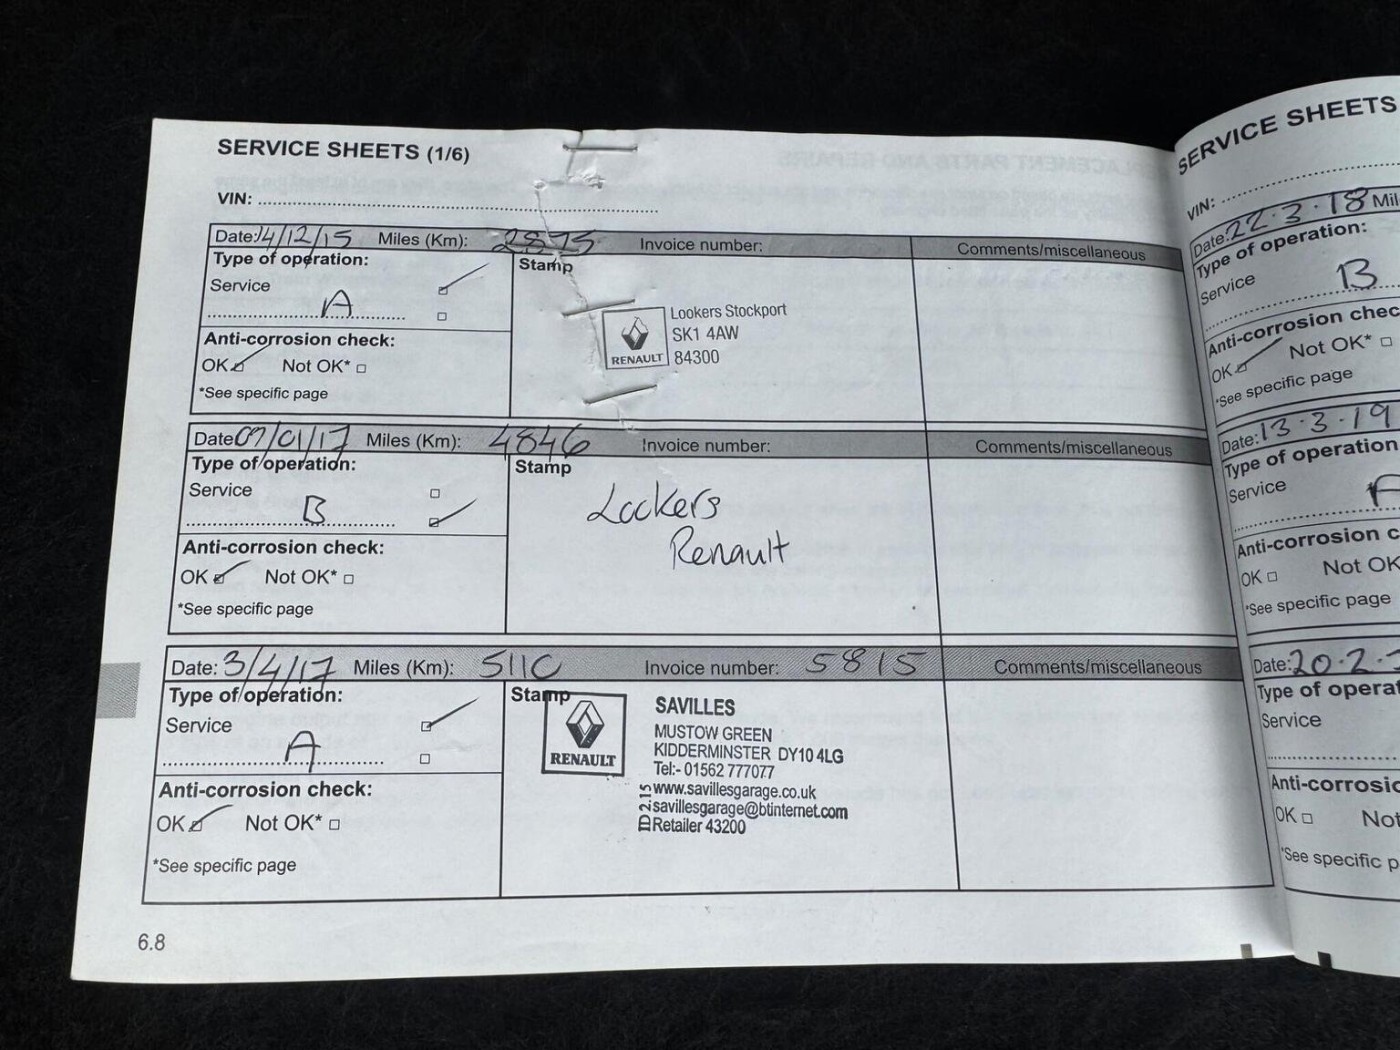 SERVICE SHEETS (1/6)
VIN:
Date: 14/12/15 Miles (Km): 2875 Invoice number: Comments/miscellaneous
Type of operation:
Service
A
Anti-corrosion check:
OK Not OK*
*See specific page
Stamp
RENAULT
Lookers Stockport
SK1 4AW
84300
Date: 07/01/17 Miles (Km): 4846 Invoice number: Comments/miscellaneous
Type of operation:
Service
B
Anti-corrosion check:
OK Not OK*
*See specific page
Stamp
Lookers
Renault
Date: 3/4/17 Miles (Km): 5110 Invoice number: 5815 Comments/miscellaneous
Type of operation:
Service
A
Anti-corrosion check:
OK Not OK*
*See specific page
Stamp
RENAULT
SAVILLES
MUSTOW GREEN
KIDDERMINSTER DY10 4LG
Tel:- 01562 777077
www.savillesgarage.co.uk
savillesgarage@btinternet.com
Retailer 43200
6.8
SERVICE SHEETS
VIN:
Date: 22.3.18
Type of operation:
Service
B
Anti-corrosion
OK Not OK*
*See specific page
Date: 13.3.19
Type of operation
Service
A
Anti-corrosion
OK Not OK
*See specific page
Date: 20.2.
Type of
Service
OK Not
*See specific